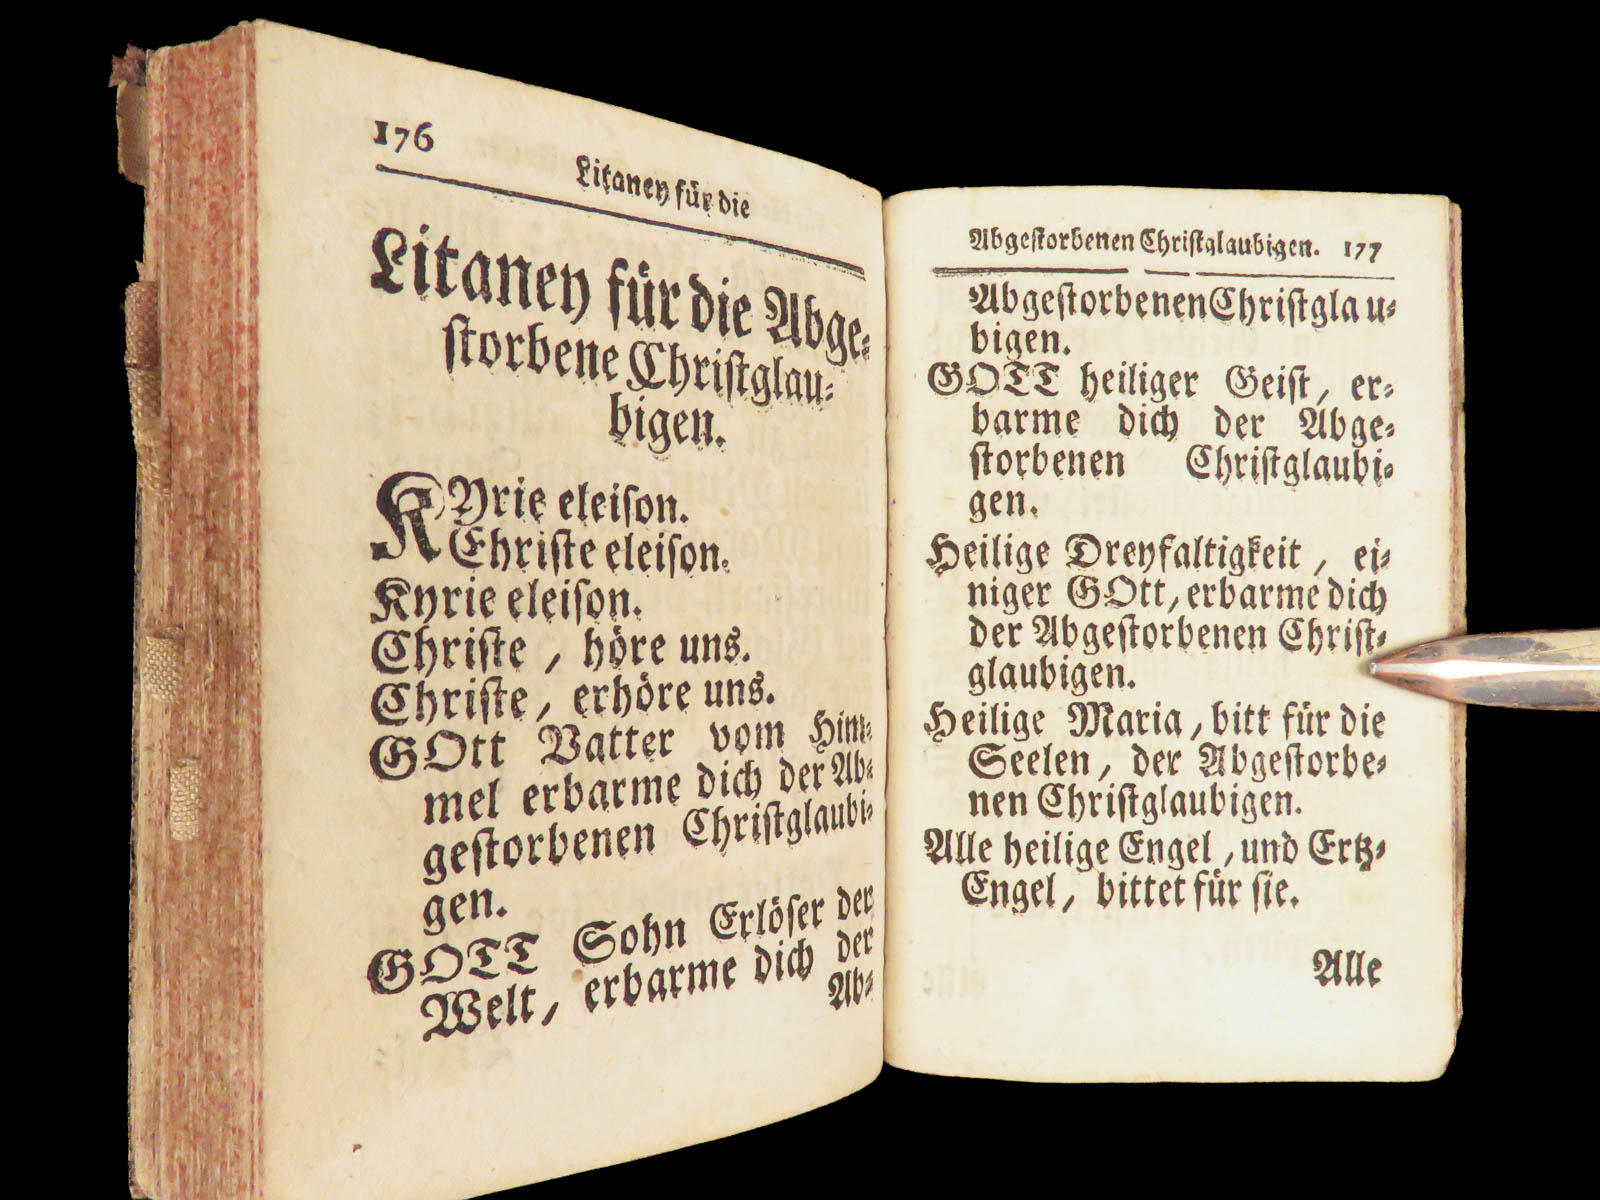 176
Litaney für die
Litaney für die Abge-
storbene Christglau-
bigen.
KYrie eleison.
Christe eleison.
Kyrie eleison.
Christe, höre uns.
Christe, erhöre uns.
GOtt Vatter vom Him-
mel erbarme dich der Ab-
gestorbenen Christglaubi-
gen.
GOTT Sohn Erlöser der
Welt, erbarme dich der
Ab-
Abgestorbenen Christglaubigen. 177
Abgestorbenen Christglau-
bigen.
GOTT heiliger Geist, er-
barme dich der Abge-
storbenen Christglaubi-
gen.
Heilige Dreyfaltigkeit, ei-
niger GOtt, erbarme dich
der Abgestorbenen Christ-
glaubigen.
Heilige Maria, bitt für die
Seelen, der Abgestorbe-
nen Christglaubigen.
Alle heilige Engel, und Ertz-
Engel, bittet für sie.
Alle